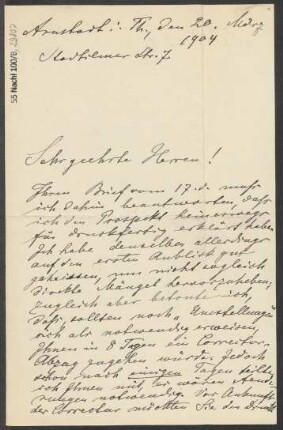 Arnstadt i. Th., den 20. März
1904
Stadtilmer Str. 7.
55 Nachl 100/B,
Sehr geehrte Herren!
Ihren Brief vom 17. d. muss
ich dahin beantworten, dass
ich den Prospekt keineswegs
für druckfertig erklärt habe.
Ich habe denselben allerdings
auf den ersten Anblick gut
geheissen, um nicht sogleich
direkte Mängel hervorzuheben,
zugleich aber betonte ich,
dass, sollten noch
sich als notwendig erweisen,
Ihnen in 8 Tagen ein Correctur-
Abzug zugehen würde, jedoch
schon nach einigen Tagen teilte
ich Ihnen mit, es wären Aende-
rungen notwendig. Vor Ankunft
der Correctur Sie den Druck